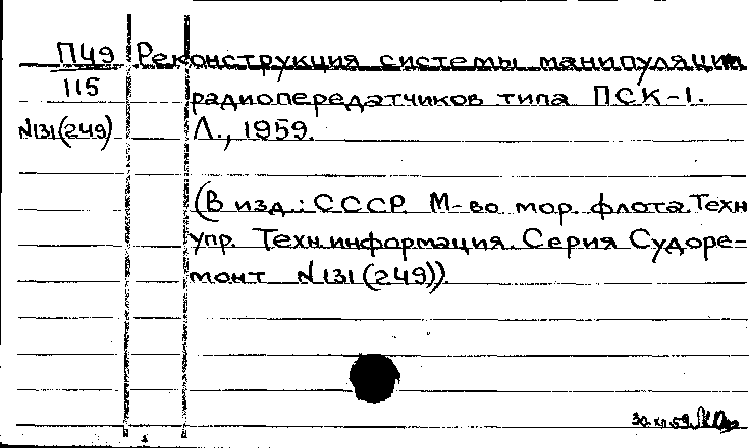 П49 Реконструкция системы манипуляции
115
радиопередатчиков типа ПСК-1.
N131(249) Л., 1959.
(В изд.: СССР. М-во мор. флота. Техн
упр. Техн. информация. Серия Судоре-
монт N131(249)).
30.XII.59.